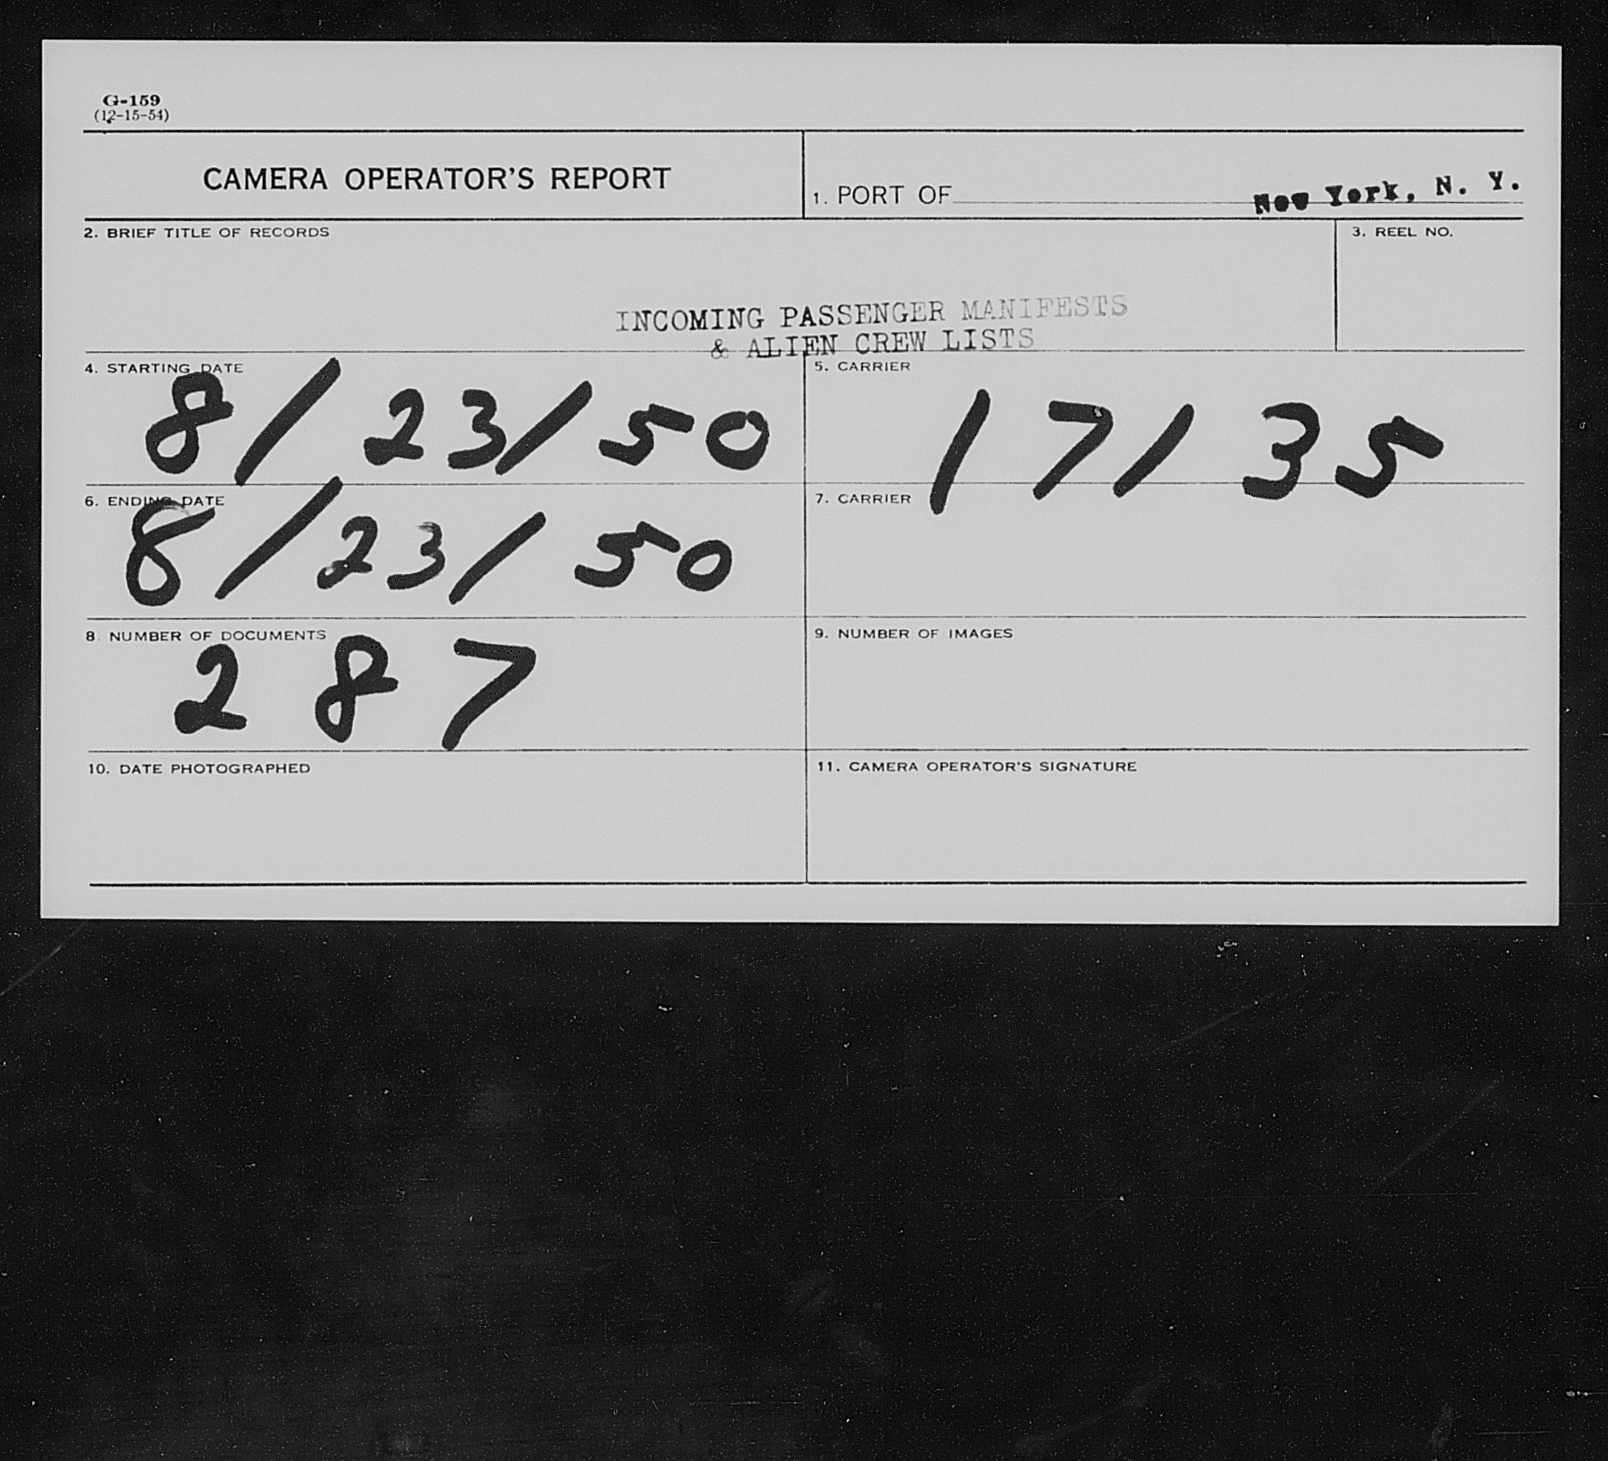 G-159
(12-15-54)
CAMERA OPERATOR'S REPORT
1. PORT OF New York, N. Y.
2. BRIEF TITLE OF RECORDS
3. REEL NO.
INCOMING PASSENGER MANIFESTS
& ALIEN CREW LISTS
4. STARTING DATE
8/23/50
5. CARRIER
17135
6. ENDING DATE
8/23/50
7. CARRIER
8. NUMBER OF DOCUMENTS
287
9. NUMBER OF IMAGES
10. DATE PHOTOGRAPHED
11. CAMERA OPERATOR'S SIGNATURE